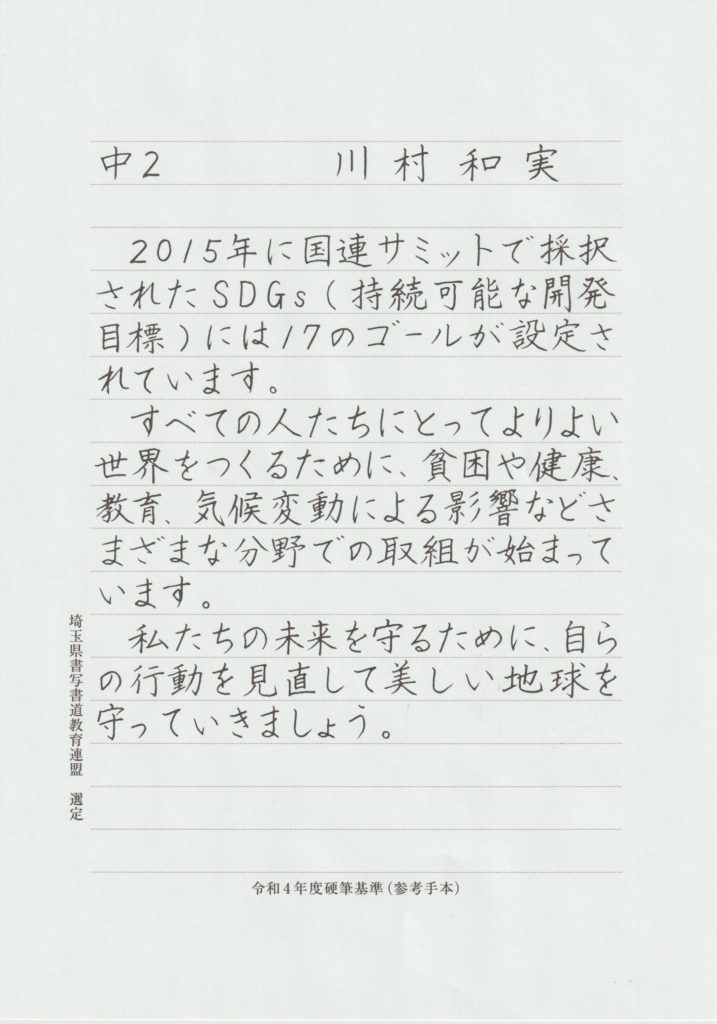 中2　川村和実
2015年に国連サミットで採択
されたSDGs(持続可能な開発
目標)には17のゴールが設定さ
れています。
すべての人たちにとってよりよい
世界をつくるために、貧困や健康、
教育、気候変動による影響などさ
まざまな分野での取組が始まって
います。
私たちの未来を守るために、自ら
の行動を見直して美しい地球を
守っていきましょう。
埼玉県書写書道教育連盟　選定
令和4年度硬筆基準(参考手本)